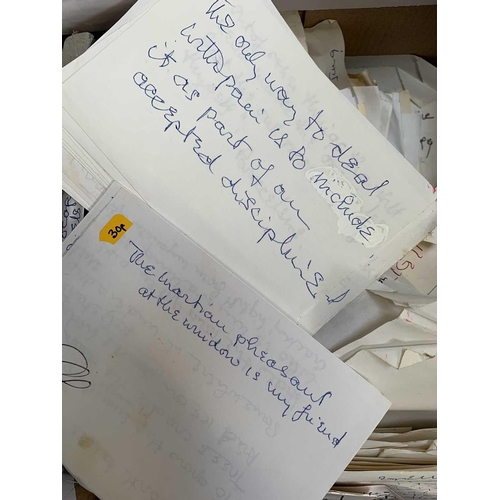 The only way to deal
with pain is to include
it as part of an
accepted discipline
30p
The martian pheasant
at the window is my friend